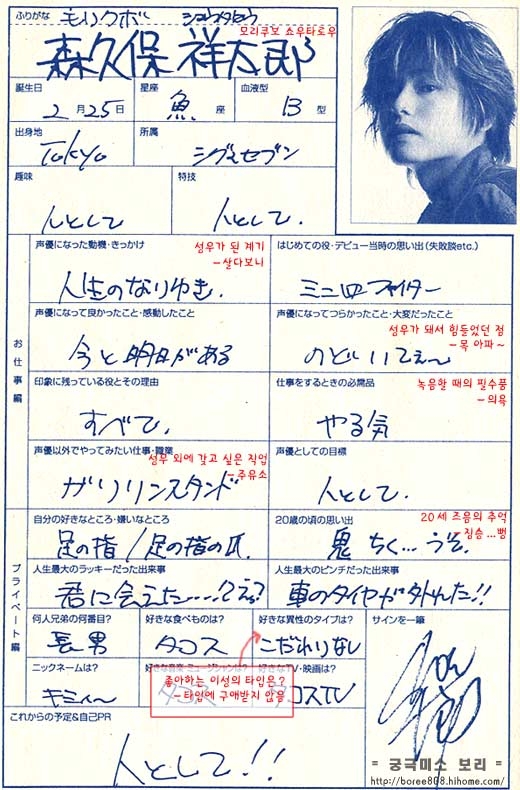 ふりがな モリクボ ショウタロウ
모리쿠보 쇼우타로우
森久保 祥太郎
誕生日 星座 血液型
2月25日 魚座 B型
出身地 所属
Tokyo シグマセブン
趣味 特技
人として 人として.
お仕事編
声優になった動機・きっかけ
성우가 된 계기
-살다보니
人生のなりゆき.
はじめての役・デビュー当時の思い出(失敗談etc.)
ミニ四ファイター
声優になって良かったこと・感動したこと
今と明日がある
声優になってつらかったこと・大変だったこと
성우가 돼서 힘들었던 점
- 목 아파~
のどいてぇ〜
印象に残っている役とその理由
すべて.
仕事をするときの必需品
녹음할 때의 필수품
-의욕
やる気
声優以外でやってみたい仕事・職業
성우 외에 갖고 싶은 직업
-주유소
ガソリンスタンド
声優としての目標
人として.
プライベート編
自分の好きなところ・嫌いなところ
足の指/足の指の爪
20歳の頃の思い出
20세 즈음의 추억
- 짐승...뻥
鬼ちく…うそ.
人生最大のラッキーだった出来事
君に会えた……
人生最大のピンチだった出来事
車のタイヤが外れた!!
何人兄弟の何番目?
長男
好きな食べものは?
タコス
好きな異性のタイプは?
こだわりなし
サインを一筆
ニックネームは?
キミィ〜
好きな音楽・ミュージシャンは?
好きなTV・映画は?
コスTV
좋아하는 이성의 타입은?
- 타입에 구애받지 않음
これからの予定&自己PR
人として!!
= 궁극미소 보리 =
http://boree808.hihome.com/